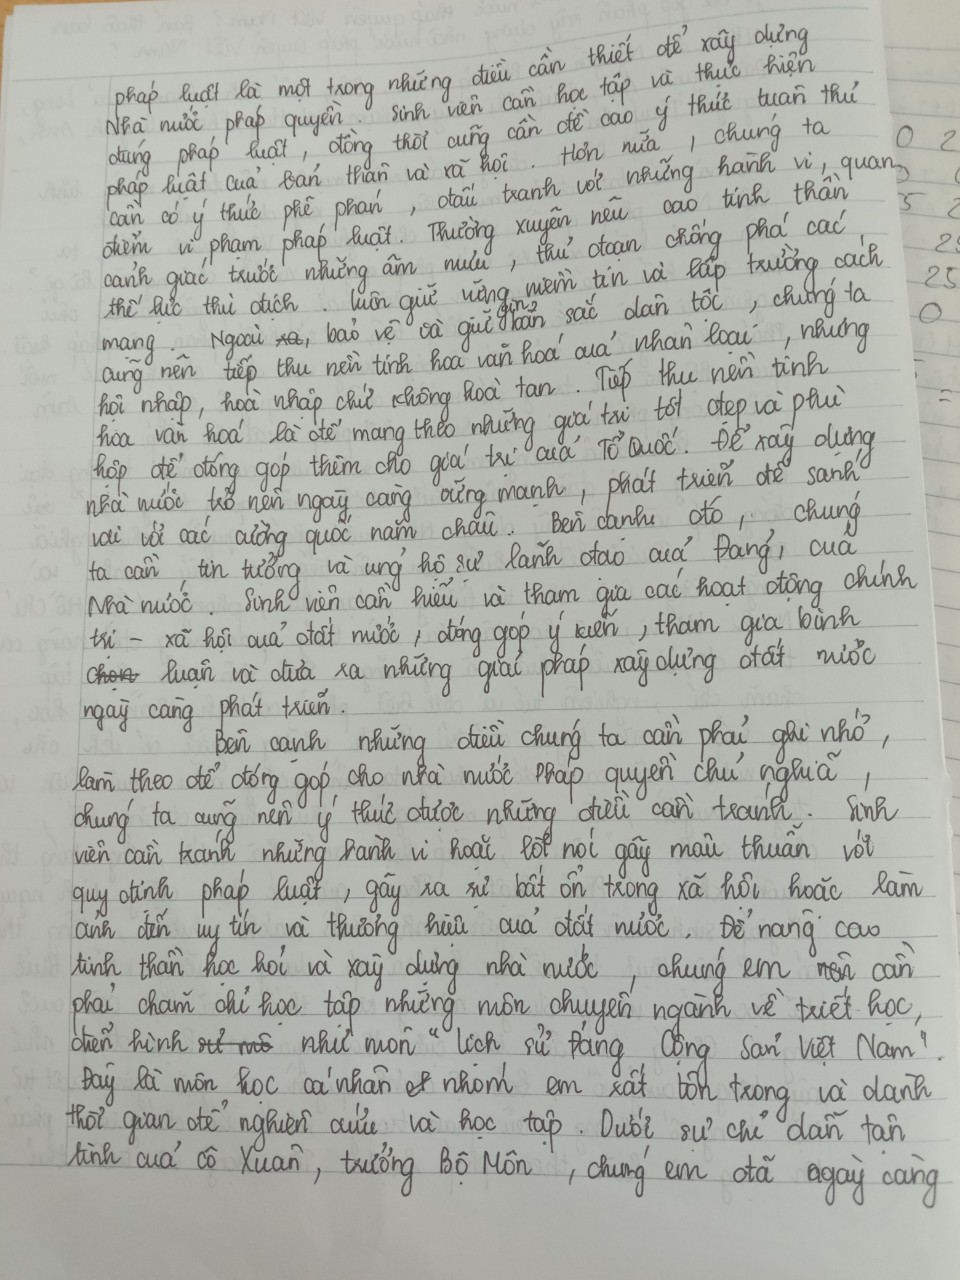 pháp luật là một trong những điều cần thiết để xây dựng
Nhà nước pháp quyền. Sinh viên cần học tập và thực hiện
đúng pháp luật, đồng thời cũng cần đề cao ý thức tuân thủ
pháp luật của bản thân và xã hội. Hơn nữa, chúng ta
cần có ý thức phê phán, đấu tranh với những hành vi, quan
điểm vi phạm pháp luật. Thường xuyên nêu cao tinh thần
cảnh giác trước những âm mưu, thủ đoạn chống phá các
thế lực thù địch. Luôn giữ vững niềm tin và lập trường cách
mạng. Ngoài ra, bảo vệ và giữ gìn bản sắc dân tộc, chúng ta
cũng nên tiếp thu nền tinh hoa văn hoá của nhân loại, nhưng
hội nhập, hoà nhập chứ không hoà tan. Tiếp thu nền tinh
hoa văn hoá là để mang theo những giá trị tốt đẹp và phù
hợp để đóng góp thêm cho giá trị của Tổ Quốc. Để xây dựng
nhà nước trở nên ngày càng vững mạnh, phát triển để sánh
vai với các cường quốc năm châu. Bên cạnh đó, chúng
ta cần tin tưởng và ủng hộ sự lãnh đạo của Đảng, của
Nhà nước. Sinh viên cần hiểu và tham gia các hoạt động chính
trị - xã hội của đất nước, đóng góp ý kiến, tham gia bình
chọn luận và đưa ra những giải pháp xây dựng đất nước
ngày càng phát triển.
Bên cạnh những điều chúng ta cần phải ghi nhớ,
làm theo để đóng góp cho nhà nước pháp quyền chủ nghĩa,
chúng ta cũng nên ý thức được những điều cần tránh. Sinh
viên cần tránh những hành vi hoặc lời nói gây mâu thuẫn với
quy định pháp luật, gây ra sự bất ổn trong xã hội hoặc làm
ảnh đến uy tín và thương hiệu của đất nước. Để nâng cao
tinh thần học hỏi và xây dựng nhà nước, chúng em nên cần
phải chăm chỉ học tập những môn chuyên ngành về triết học,
điển hình như môn "Lịch sử Đảng Cộng Sản Việt Nam".
Đây là môn học cá nhân nhóm em rất tôn trọng và dành
thời gian để nghiên cứu và học tập. Dưới sự chỉ dẫn tận
tình của cô Xuân, trưởng Bộ Môn, chúng em đã ngày càng